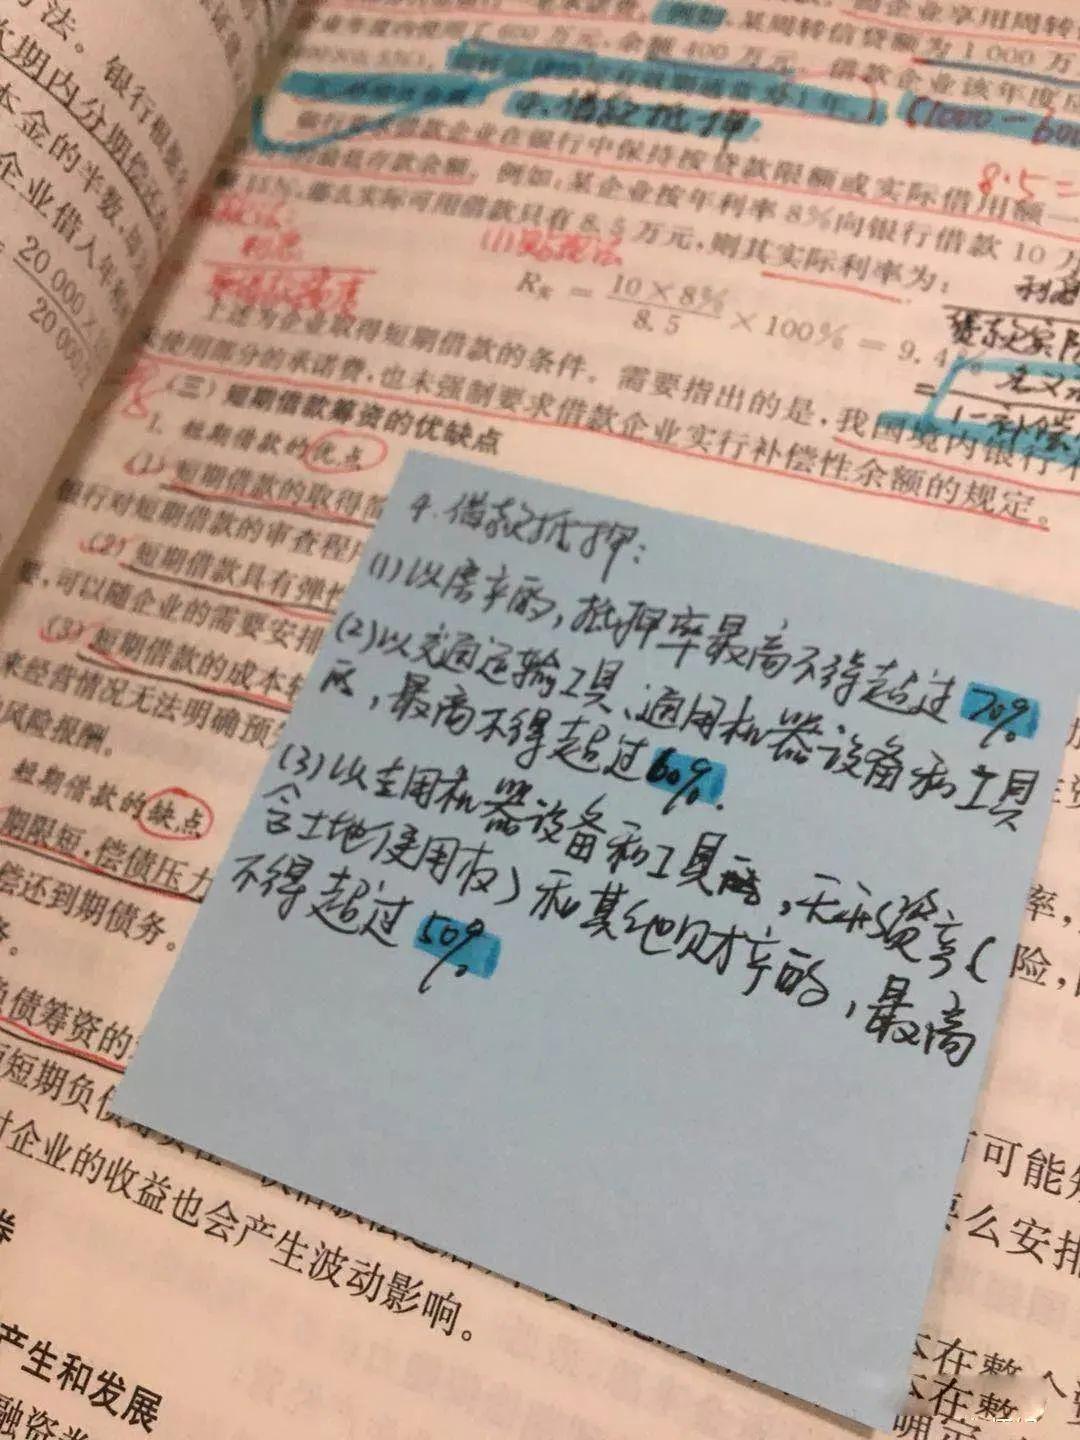 方法。银行根据
期内分期偿还
本金的半数,
企业借入年利
20 000×
20 000/
企业享用周转
例如,某周转信贷额为1 000万
年度内使用了600万元,余额400万元,借款企业该年度应
4.借款抵押
(1000-600
银行要求借款企业在银行中保持按贷款限额或实际借用额一
最低存款余额。例如,某企业按年利率8%向银行借款10万
8.5=
那么实际可用借款只有8.5万元,则其实际利率为:
(1)贴现法
利息
R实=10×8%/8.5×100%=9.4%
上述为企业取得短期借款的条件。需要指出的是,我国境内银行
未使用部分的承诺费,也未强制要求借款企业实行补偿性余额的规定。
(三)短期借款筹资的优缺点
1.短期借款的优点
(1)短期借款的取得简
银行对短期借款的审查程
(2)短期借款具有弹性
要,可以随企业的需要安排
(3)短期借款的成本较
来经营情况无法明确预
风险报酬。
短期借款的缺点
期限短,偿债压力
偿还到期债务。
负债筹资的
短期负债
对企业的收益也会产生波动影响。
产生和发展
融资券
4.借款抵押:
(1)以房产的,抵押率最高不得超过70%
(2)以交通运输工具、通用机器设备和工具
的,最高不得超过60%.
(3)以专用机器设备和工具的,无形资产(
含土地使用权)和其他财产的,最高
不得超过50%
率,
险,
可能
么安排
本在整个
本在整
确定